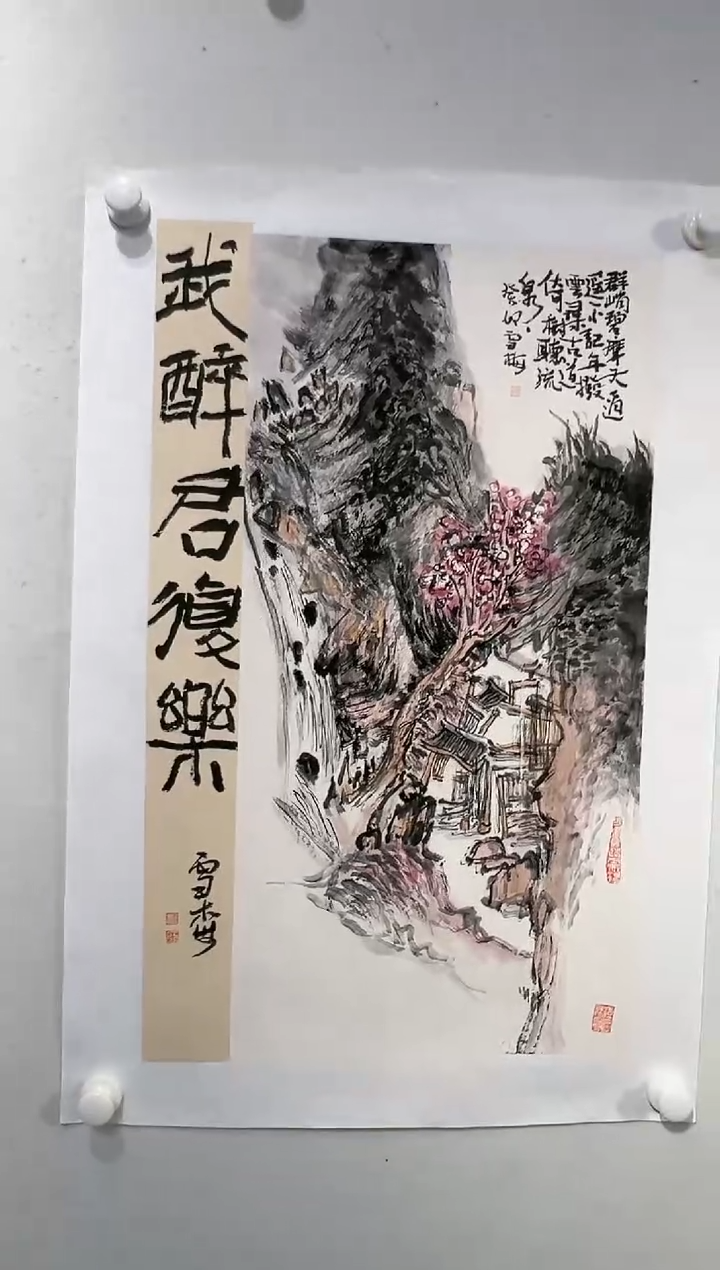 群峭碧摩天逍
遥不記年撥
雲尋古道
倚樹聽流
泉
癸卯雪梅
我醉君復樂
雪梅